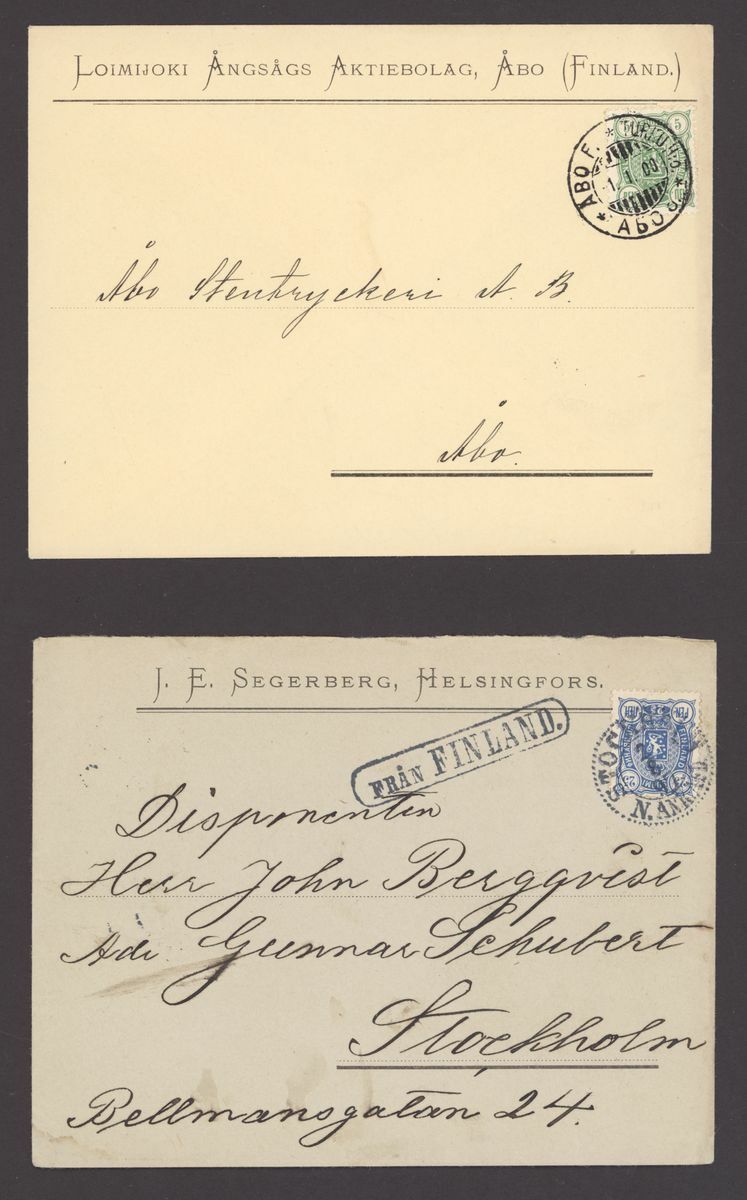 LOIMIJOKI ÅNGSÅGS AKTIEBOLAG, ÅBO (FINLAND.)
5
ÅBO F. * TURKU
1.1.00
* ÅBO *
Åbo Stentryckeri A. B.
Åbo.
J. E. SEGERBERG, HELSINGFORS.
FRÅN FINLAND.
25
N. ANK
Disponenten
Herr John Bergqvist
Adr Gunnar Schubert
Stockholm
Bellmansgatan 24.